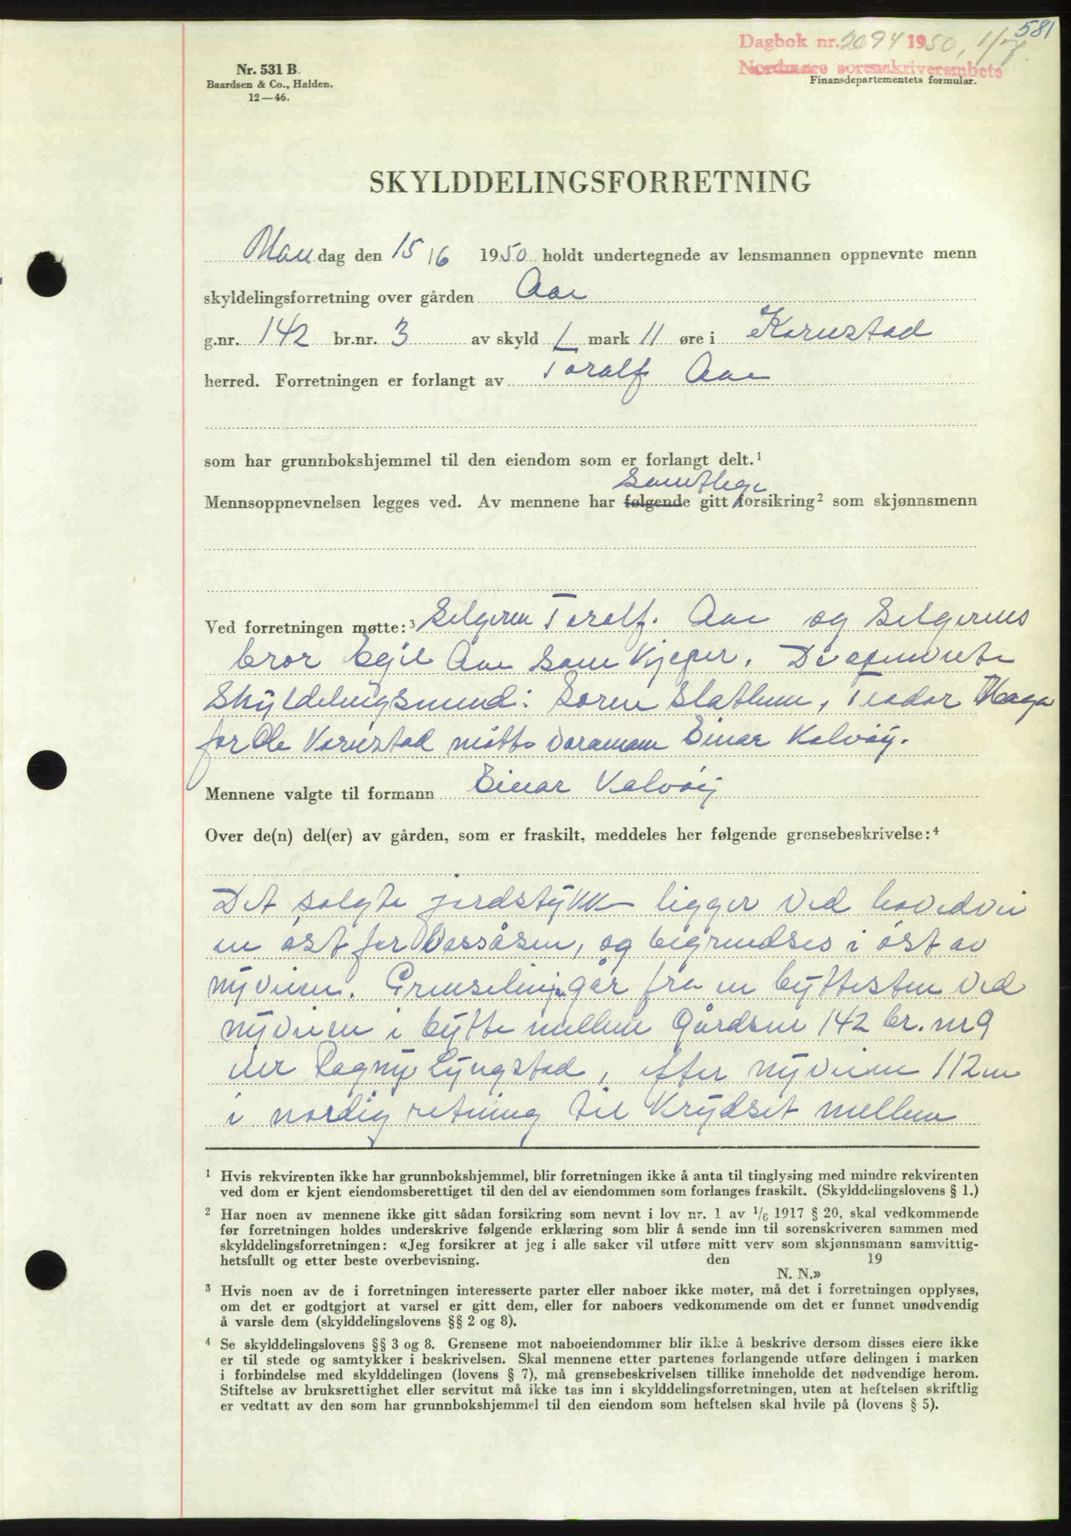 581
Dagbok nr. 2094 1950, 1/7
Nordmøre sorenskriverembete
Nr. 531 B.
Baardsen & Co., Halden.
12—46.
Finansdepartementets formular.
SKYLDDELINGSFORRETNING
Man dag den 15/6 1950 holdt undertegnede av lensmannen oppnevnte menn
skyldelingsforretning over gården Aae
g.nr. 142 br.nr. 3 av skyld 1 mark 11 øre i Kornstad
herred. Forretningen er forlangt av Toralf Aae
som har grunnbokshjemmel til den eiendom som er forlangt delt.¹
Samtlege
Mennsoppnevnelsen legges ved. Av mennene har følgende gitt forsikring² som skjønnsmenn
Ved forretningen møtte:³ Selgeren Toralf. Aae og Selgerens
bror Egil Aae som Kjøper. De opnevnte
Skyldelingsmend: Søren Slatlem, Teodor Haga
for Ole Kornstad møtte varamann Einar Kalvøy.
Mennene valgte til formann Einar Kalvøy
Over de(n) del(er) av gården, som er fraskilt, meddeles her følgende grensebeskrivelse:⁴
Det solgte jordstykk ligger ved hovedvei
en øst for Vassåsen, og begrendses i øst av
nyveien. Grenselinjen går fra en byttesten ved
nyveien i bytte mellem gårdsnr 142 br. nr 9
eier Ragny Lyngstad, efter nyveien 112 m
i nordig retning til Krydset mellem
¹ Hvis rekvirenten ikke har grunnbokshjemmel, blir forretningen ikke å anta til tinglysing med mindre rekvirenten
ved dom er kjent eiendomsberettiget til den del av eiendommen som forlanges fraskilt. (Skylddelingslovens § 1.)
² Har noen av mennene ikke gitt sådan forsikring som nevnt i lov nr. 1 av 1/6 1917 § 20, skal vedkommende
før forretningen holdes underskrive følgende erklæring som blir å sende inn til sorenskriveren sammen med
skylddelingsforretningen: «Jeg forsikrer at jeg i alle saker vil utføre mitt verv som skjønnsmann samvittig-
hetsfullt og etter beste overbevisning. den 19
N. N.»
³ Hvis noen av de i forretningen interesserte parter eller naboer ikke møter, må det i forretningen opplyses,
om det er godtgjort at varsel er gitt dem, eller for naboers vedkommende om det er funnet unødvendig
å varsle dem (skylddelingslovens §§ 2 og 8).
⁴ Se skylddelingslovens §§ 3 og 8. Grensene mot naboeiendommer blir ikke å beskrive dersom disses eiere ikke
er til stede og samtykker i beskrivelsen. Skal mennene etter partenes forlangende utføre delingen i marken
i forbindelse med skylddelingen (lovens § 7), må grensebeskrivelsen tillike inneholde det nødvendige herom.
Stiftelse av bruksrettighet eller servitut må ikke tas inn i skylddelingsforretningen, uten at heftelsen skriftlig
er vedtatt av den som har grunnbokshjemmel til den eiendom som heftelsen skal hvile på (lovens § 5).